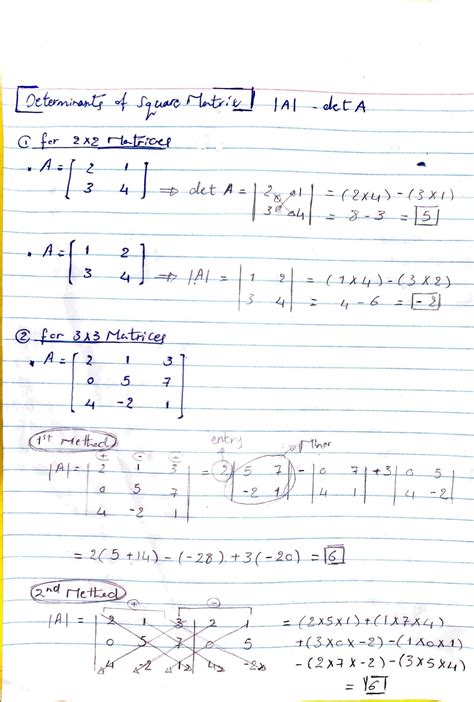 Determinants of Square Matrix |A| - det A
① for 2x2 Matrices
• A = [ 2 1
3 4 ] ⇒ det A = | 2 1
3 4 | = (2x4) - (3x1)
= 8 - 3 = 5
• A = [ 1 2
3 4 ] ⇒ |A| = | 1 2
3 4 | = (1x4) - (3x2)
= 4 - 6 = -2
② for 3x3 Matrices
• A = [ 2 1 3
0 5 7
4 -2 1 ]
1st Method
entry Minor
+ - +
|A| = | 2 1 3
0 5 7
4 -2 1 | = 2 | 5 7
-2 1 | - | 0 7
4 1 | + 3 | 0 5
4 -2 |
= 2(5+14) - (-28) + 3(-20) = 6
2nd Method
+ -
|A| = | 2 1 3 | 2 1
0 5 7 | 0 5
4 -2 1 | 4 -2
= (2x5x1) + (1x7x4)
+ (3x0x-2) - (1x0x1)
- (2x7x-2) - (3x5x4)
= 6